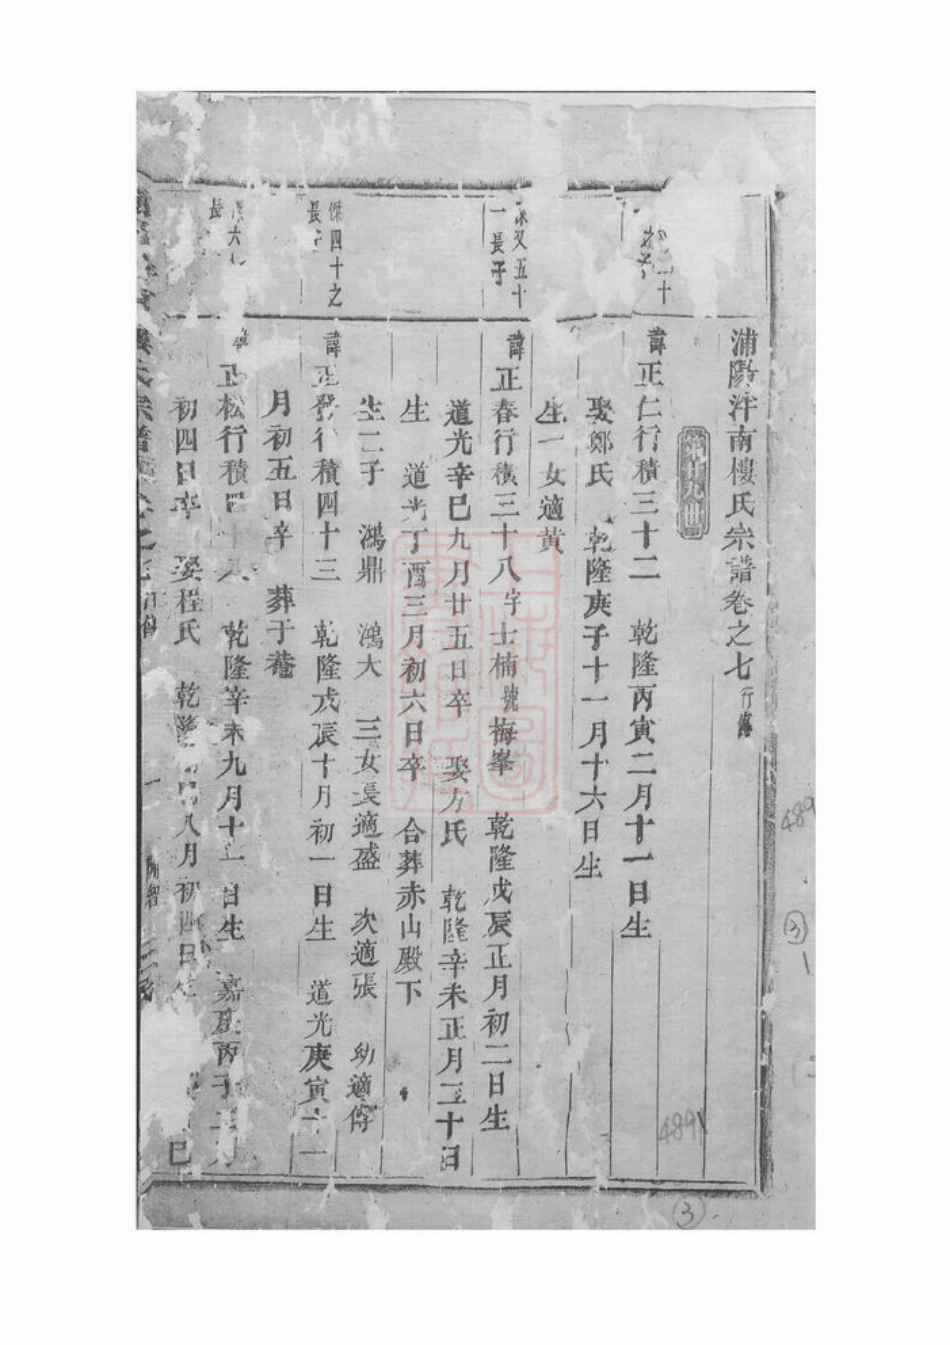 浦陽泮南樓氏宗譜卷之七行傳
第廿九冊
諱正仁行積三十二 乾隆丙寅二月十一日生
娶鄭氏 乾隆庚子十一月十六日生
生一女適黃
又五十
一長子
諱正春行積三十八字士楠號梅峯 乾隆戊辰正月初二日生
道光辛巳九月廿五日卒 娶方氏 乾隆辛未正月二十日
生 道光丁酉三月初六日卒 合葬赤山殿下
生二子 鴻鼎 鴻大 三女長適盛 次適張 幼適傅
傑四十之
長子
諱正發行積四十三 乾隆戊辰十月初一日生 道光庚寅十一
月初五日卒 葬于菴
六
長
正松行積四十 乾隆辛未九月十一日生 嘉慶丙子
初四日卒 娶程氏 乾隆 八月初四日生 巳
樓氏宗譜 卷之七 行傳
489
③
1
4891
③